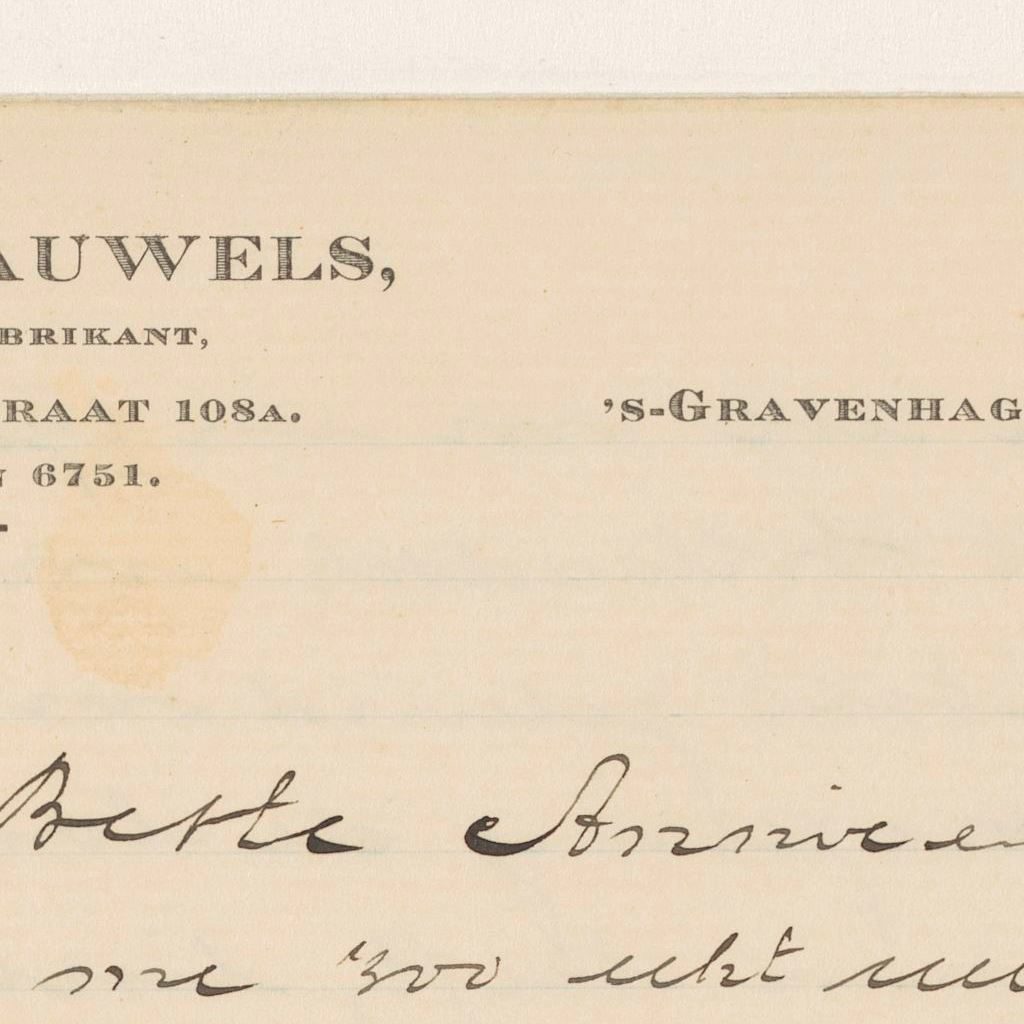 AUWELS,
BRIKANT,
RAAT 108A. 'S-GRAVENHAG
6751.
Beste Annie e
me zoo echt